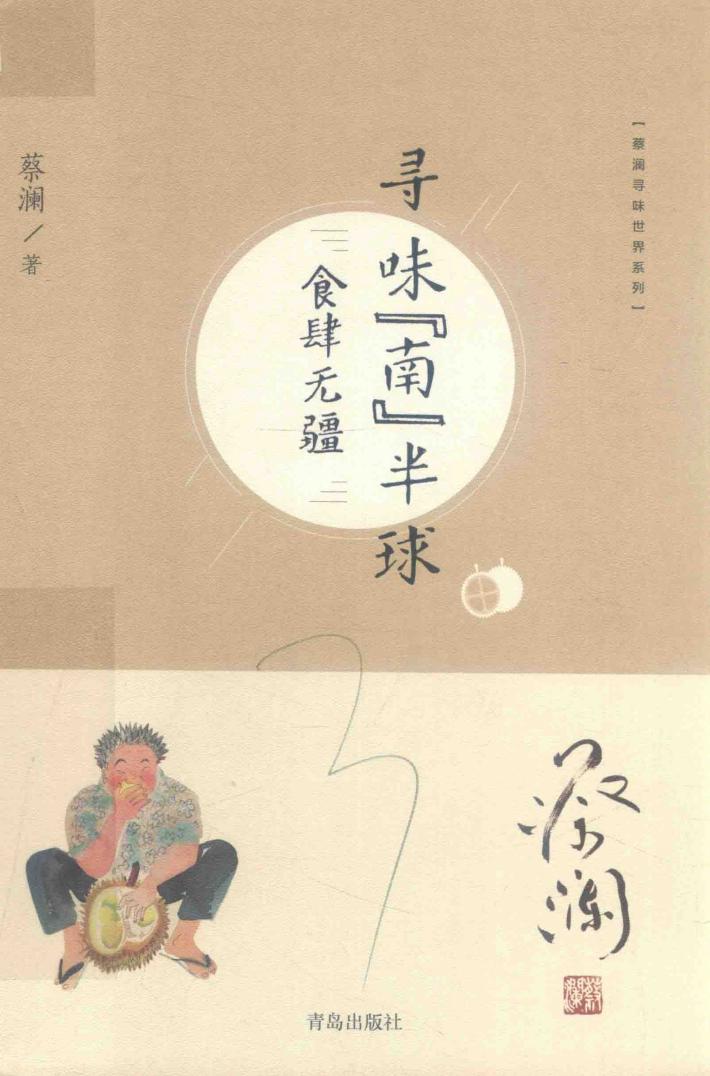 【蔡澜寻味世界系列】
寻味『南』半球
食肆无疆
蔡澜／著
蔡澜
蔡澜
青岛出版社